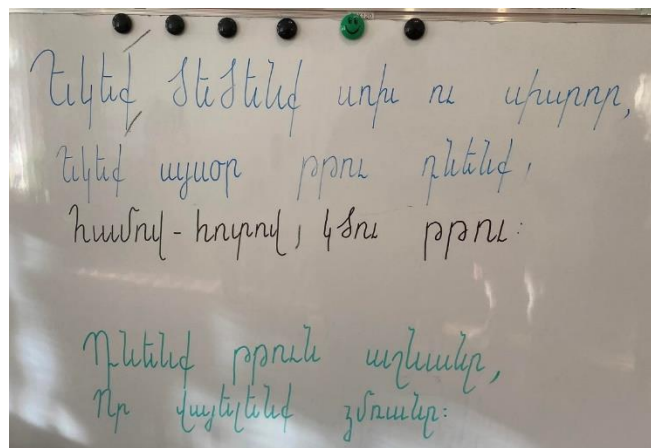 Եկեք ծեծենք սոխ ու սխտոր,
Եկեք այսօր թթու դնենք,
համով - հոտով, կծու թթու:
Դնենք թթուն աշնանը,
Որ վայելենք ձմռանը: